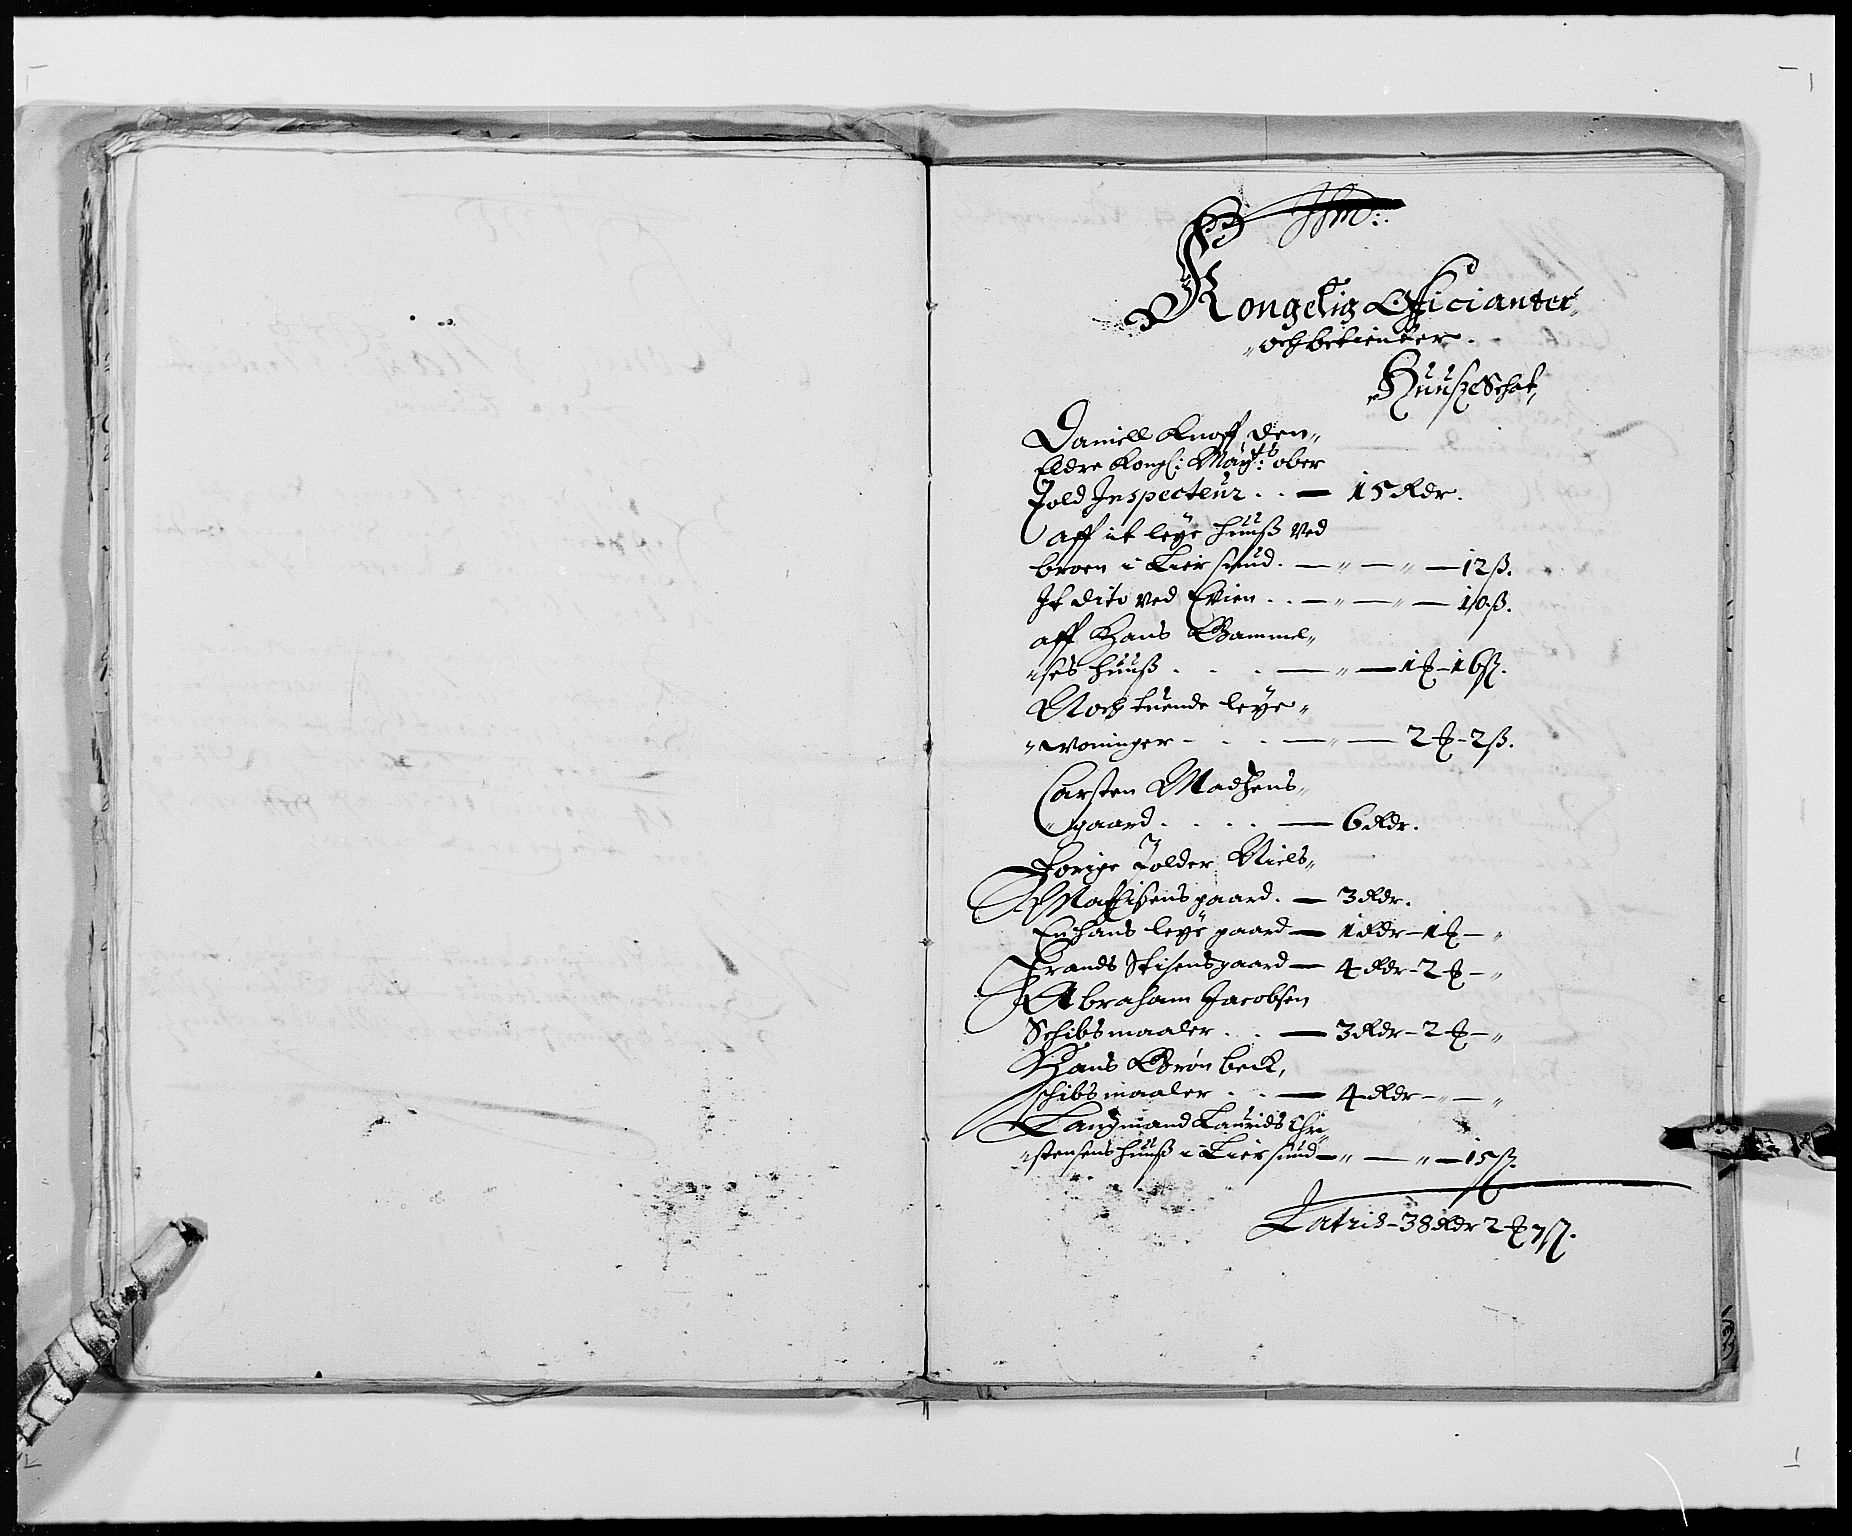 Kongelig Officianter
och betienter.
Huuse Schat,
Daniell Knoff den
Eldre Kongl: Mayt:s ober
Told Inspecteur . . — 15 Rdr.
aff it leye huuß ved
broen i Liersund. — „ — „ — 12 ß.
It dito ved Evien . . — „ — „ — 10 ß.
aff Hans Gammel„
„ses huuß . . . . — „ — 1 ℔ - 16 ß.
Noch tuende leye„
„woninger - . . . — „ — 2 ℔ - 2 ß.
Carsten Madhens„
„gaard. . . . . — 6 Rdr.
Forige Tolder Niels„
Mathisens gaard. — 3 Rdr.
En hans leye gaard — 1 Rdr - 1 ℔ - „
Frands Stisens gaard — 4 Rdr - 2 ℔ - „
Abraham Jacobsen
Schibsmaaler . . — 3 Rdr - 2 ℔ - „
Hans Grønbeck,
schibsmaaler . . — 4 Rdr - „ — „
Laugmand Laurids Chri„
„stensens huuß i Liersund — „ — „ — 15 ß.
Latris - 38 Rdr 2 ℔ 7 ß.